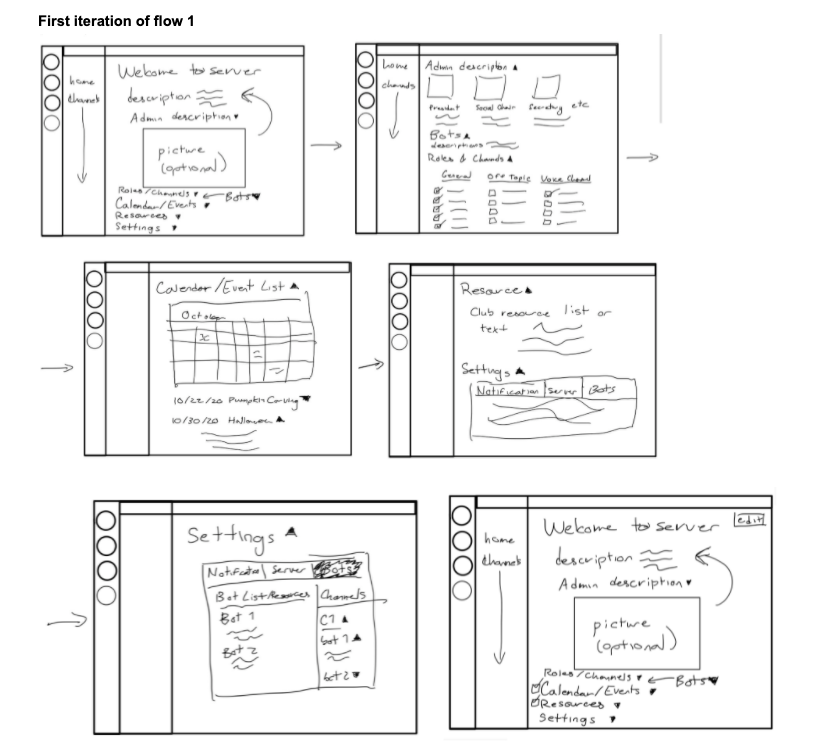 First iteration of flow 1
home
channels
Welcome to server
description
Admin description
picture
(optional)
Roles/Channels
Bots
Calendar/Events
Resources
Settings
home
channels
Admin description
President
Social Chair
Secretary
etc
Bots
descriptions
Roles & Channels
General
Off Topic
Voice Channel
Calendar/Event List
October
x
10/22/20 Pumpkin Carving
10/30/20 Halloween
Resources
Club resource list or
text
Settings
Notification
Server
Bots
Settings
Server
Bots
Bot List/Resources
Channels
Bot 1
C1
bot 1
Bot 2
bot 2
edit
home
channels
Welcome to server
description
Admin description
picture
(optional)
Roles/Channels
Bots
Calendar/Events
Resources
Settings